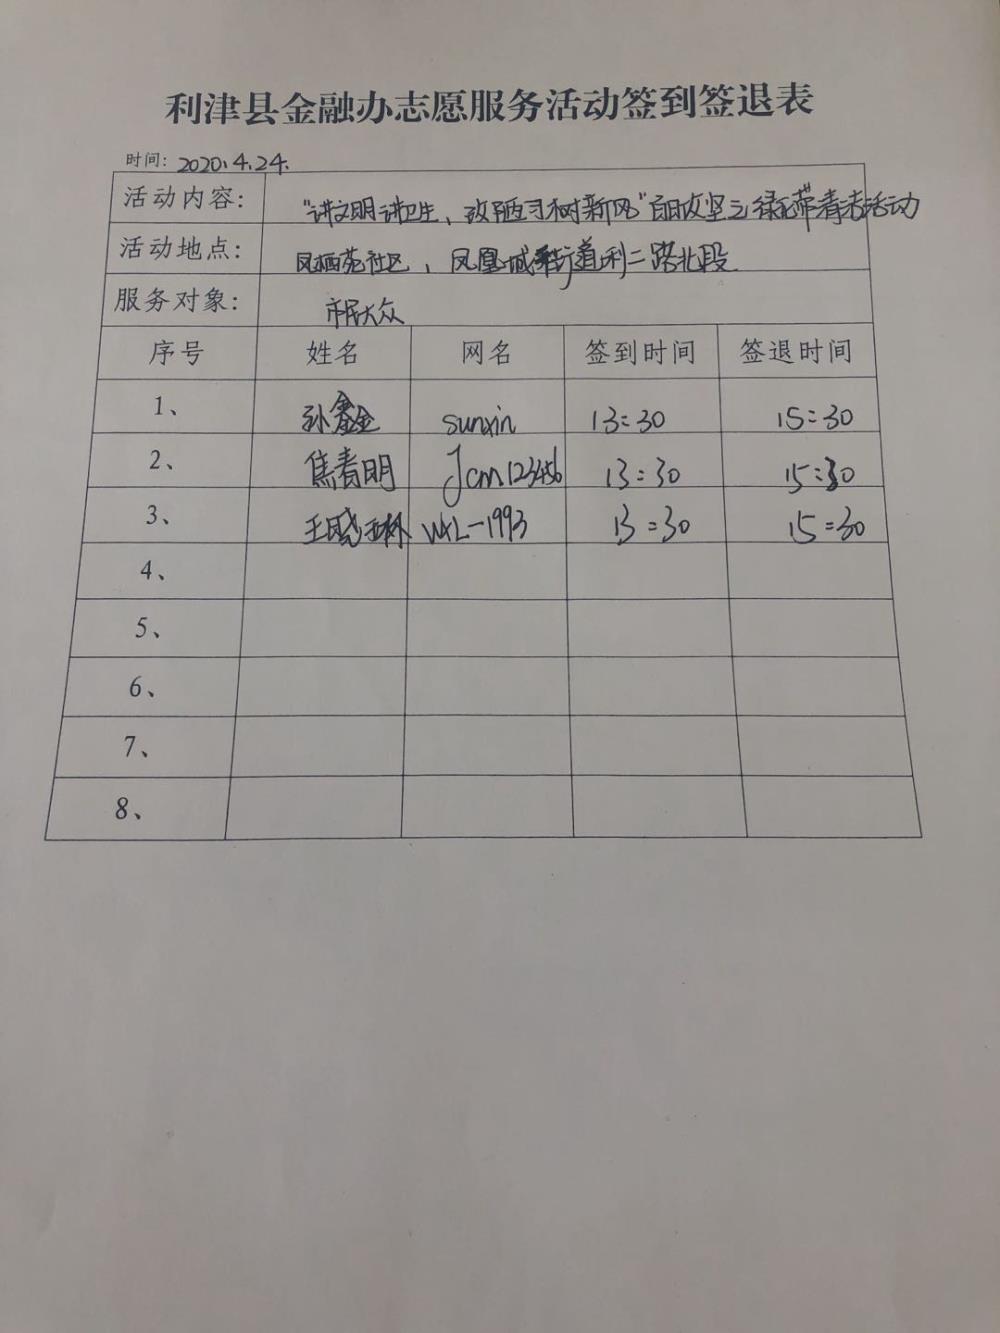 利津县金融办志愿服务活动签到签退表
时间: 2020.4.24.
活动内容: “讲文明讲卫生、改陋习树新风”百日攻坚之绿化带清表活动
活动地点: 凤栖苑社区, 凤凰城街道利二路北段
服务对象: 市民大众
序号 姓名 网名 签到时间 签退时间
1、 孙鑫 sunxin 13:30 15:30
2、 焦春明 Jcm123456 13:30 15:30
3、 王晓琳 WXL-1993 13:30 15:30
4、
5、
6、
7、
8、